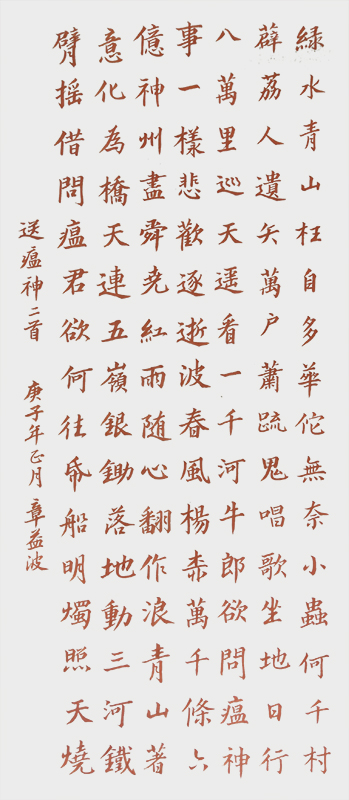 緑水青山枉自多華佗無奈小蟲何千村
薜荔人遺矢萬户蕭疏鬼唱歌坐地日行
八萬里巡天遥看一千河牛郎欲問瘟神
事一樣悲歡逐逝波春風楊柳萬千條六
億神州盡舜尭紅雨随心翻作浪青山著
意化為橋天連五嶺銀鋤落地動三河鐵
臂摇借問瘟君欲何往帋船明燭照天燒
送瘟神二首 庚子年正月 章益波